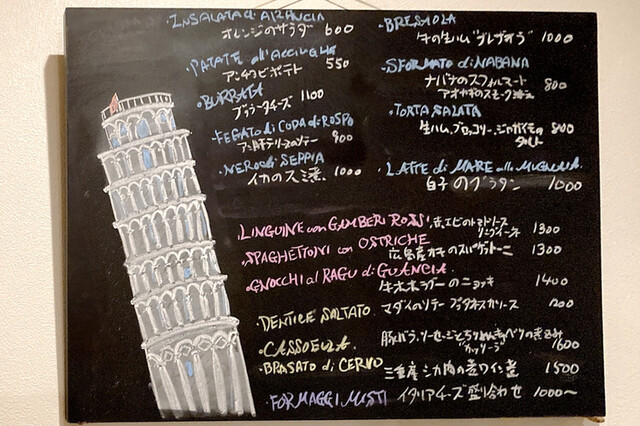 ・INSALATA di ARANCIA
オレンジのサラダ 600
・PATATE all'ACCIUGHE
アンチョビポテト 550
・BURRATA
ブッラータチーズ 1100
・FEGATO di CODA di ROSPO
900
・NERO di SEPPIA
イカのスミ煮 1000
・BRESAOLA
牛の生ハム"ブレザオラ" 1000
・SFORMATO di NABANA
ナバナのスフォルマート
アオヤギのスモーク添え 800
・TORTA SALATA
生ハム、ブロッコリー、ジャガイモの
タルト 800
・LATTE di MARE alla MUGNAIA
白子のグラタン 1000
・LINGUINE con GAMBERI ROSSI 赤エビのトマトソース
リングイーネ 1300
・SPAGHETTONI con OSTRICHE
広島産カキのスパゲットーニ 1300
・GNOCCHI al RAGU di GUANCIA
牛ホホラグーのニョッキ 1400
・DENTICE SALTATO マダイのソテー プッタネスカソース 1200
・CASSOEULA 豚バラ、ソーセージとちりめんキャベツの煮込み
"カッソーラ" 1600
・BRASATO di CERVO 三重産シカ肉の赤ワイン煮 1500
・FORMAGGI MISTI イタリアチーズ盛り合わせ 1000〜